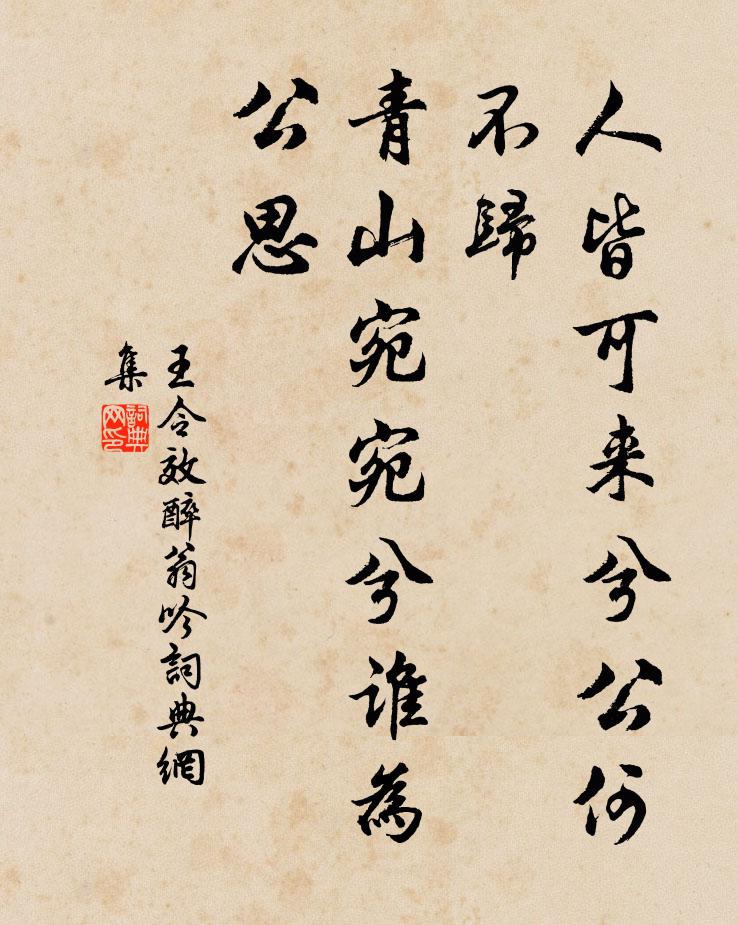 人皆可来兮公何
不歸
青山宛宛兮谁為
公思
王令效醉翁吟詞典網
集
詞典
网印